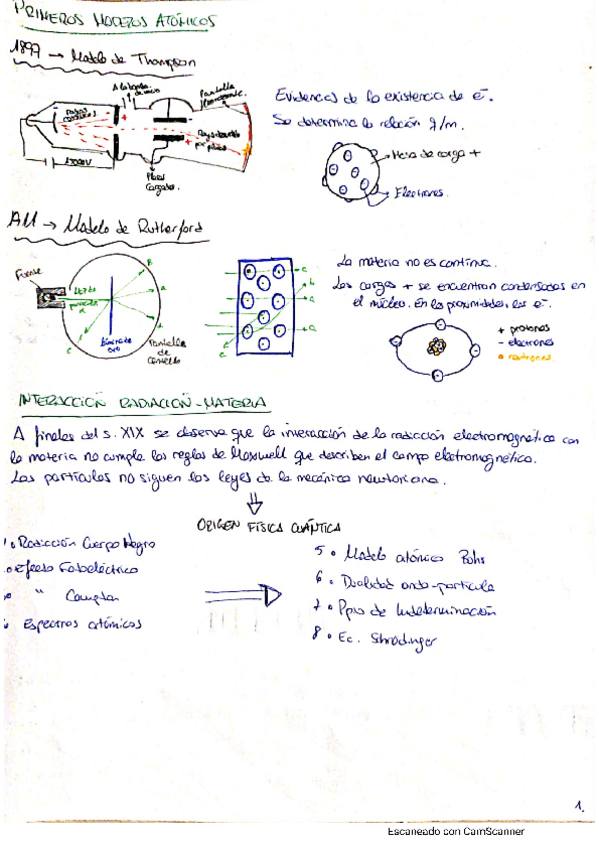 PRIMEROS MODELOS ATÓMICOS
1897 → Modelo de Thompson
A la bomba de vacío
Pantalla fluorescente
Rayos catódicos
+
1000V
Placas cargadas.
Evidencias de la existencia de e⁻.
Se determina la relación q/m.
Masa de carga +
Electrones.
1911 → Modelo de Rutherford
Fuente
α
Lámina de oro
Pantalla de centelleo
La materia no es continua.
Las cargas + se encuentran condensadas en
el núcleo. En las proximidades, los e⁻.
+ protones
- electrones
neutrones
INTERACCIÓN RADIACIÓN-MATERIA
A finales del s. XIX se observa que la interacción de la radicción electromagnética con
la materia no cumple las reglas de Maxwell que describen el campo electromagnético.
Las partículas no siguen las leyes de la mecánica newtoniana.
ORIGEN FÍSICA CUÁNTICA
Radicción Cuerpo Negro
Efecto Fotoeléctrico
" Compton
Espectros atómicos
5 • Modelo atómico Bohr
6 • Dualidad onda-partícula
7 • Ppio de Indeterminación
8 • Ec. Schrödinger
1.
Escaneado con CamScanner